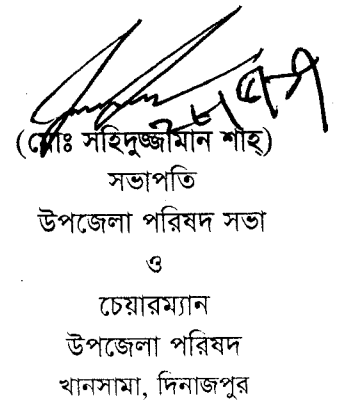 (মোঃ সহিদুজ্জামান শাহ্)
সভাপতি
উপজেলা পরিষদ সভা
ও
চেয়ারম্যান
উপজেলা পরিষদ
খানসামা, দিনাজপুর